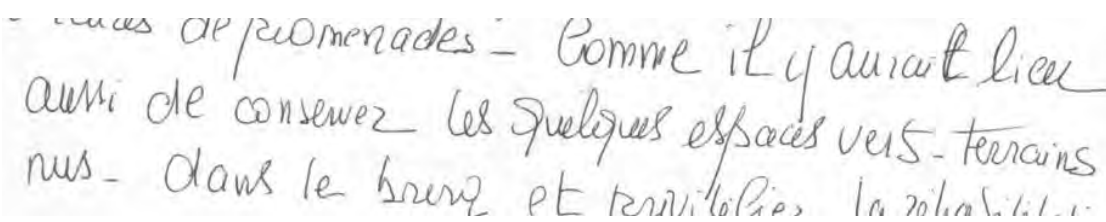 de promenades - Comme il y aurait lieu
aussi de conservez les quelques espaces verts - terrains
nus - dans le bourg et privilégier la réhabilitati